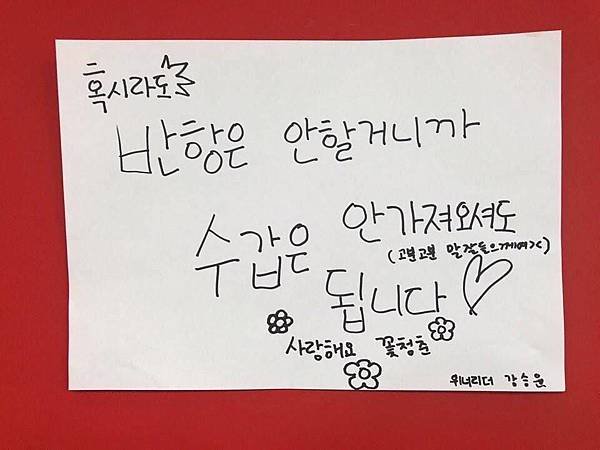 혹시라도
반항은 안할거니까
수갑은 안가져오셔도
(고분고분 말잘들으께여><)
됩니다♡
사랑해요 꽃청춘
위너리더 강승윤